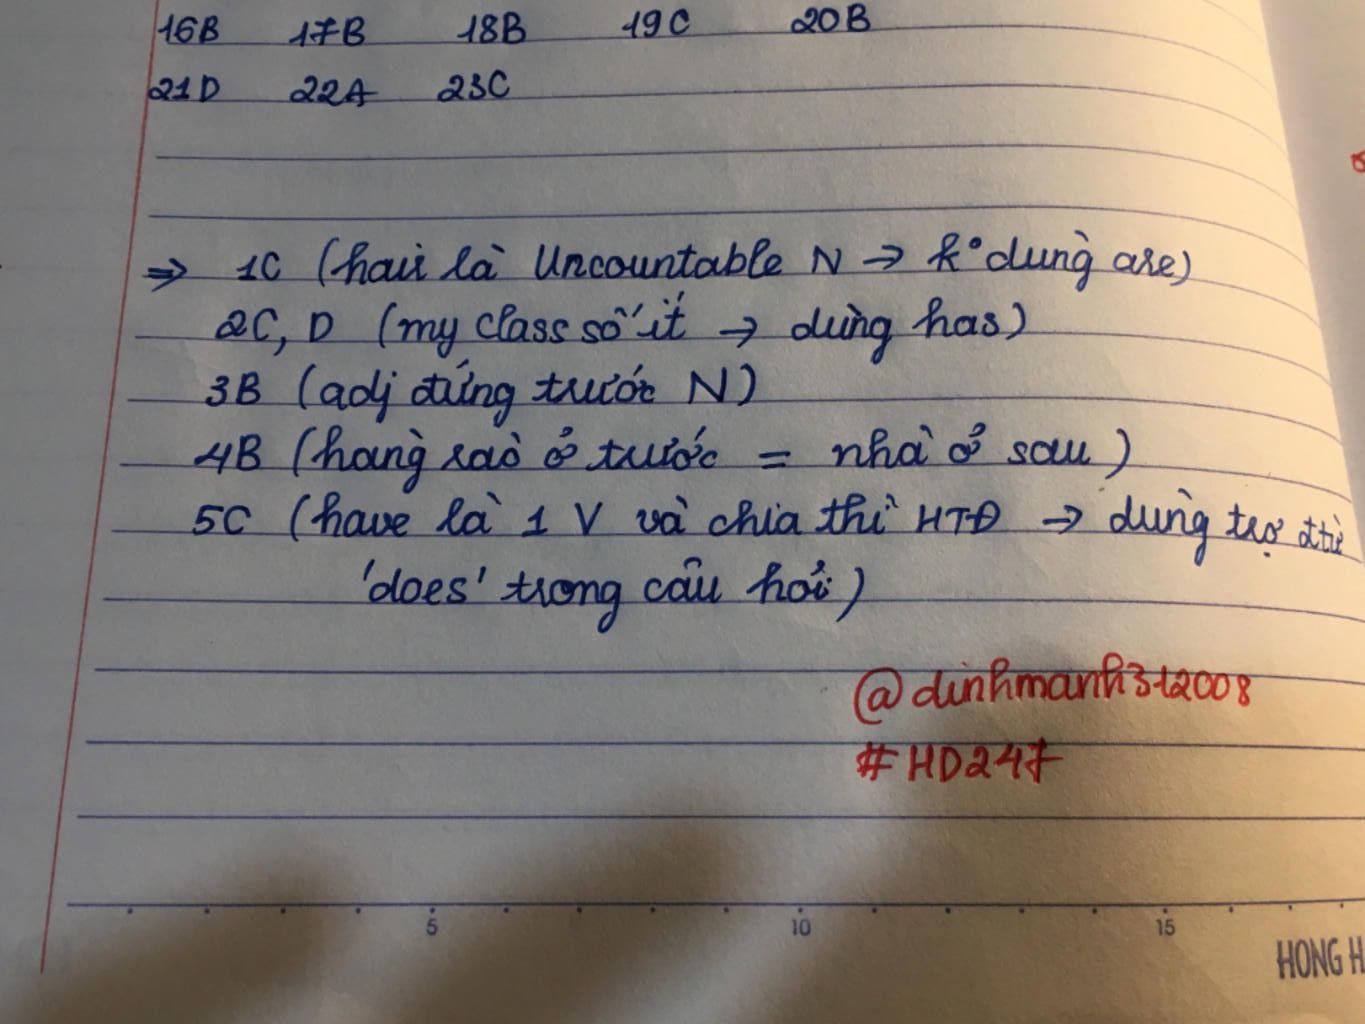 16B 17B 18B 19C 20B
21D 22A 23C
=> 1C (hair là Uncountable N → k° dùng are)
2C, D (my class số ít → dùng has)
3B (adj đứng trước N)
4B (hàng rào ở trước = nhà ở sau)
5C (have là 1 V và chia thì HTĐ → dùng trợ đtừ
'does' trong câu hỏi)
@dinhmanh312008
#HD247
5 10 15
HONG H